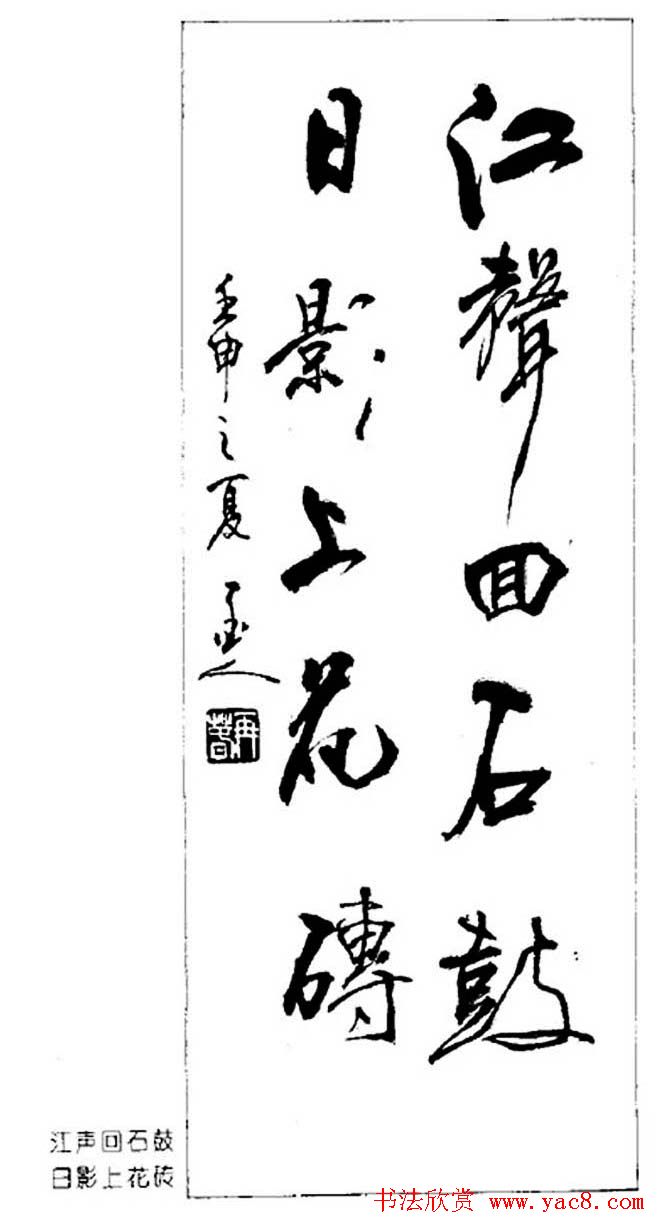 江聲回石鼓
日影上花磚
壬申之夏
江声回石鼓
日影上花砖
书法欣赏 www.yac8.com